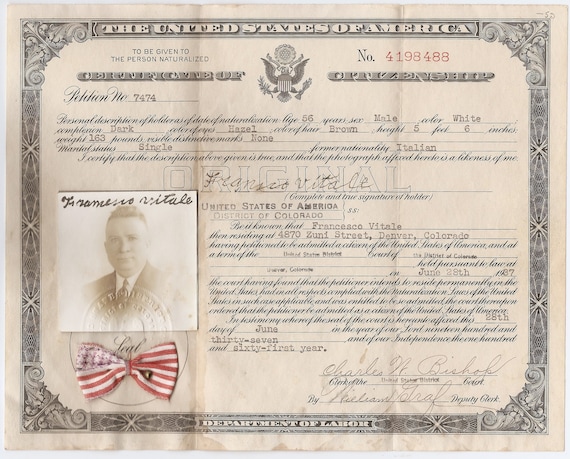 THE UNITED STATES OF AMERICA
TO BE GIVEN TO
THE PERSON NATURALIZED
No. 4198488
CERTIFICATE OF CITIZENSHIP
Petition No 7474
Personal description of holder as of date of naturalization: Age 56 years; sex Male; color White
complexion Dark color of eyes Hazel color of hair Brown; height 5 feet 6 inches;
weight 163 pounds; visible distinctive marks None
Marital status Single former nationality Italian
I certify that the description above given is true, and that the photograph affixed hereto is a likeness of me.
ORIGINAL
Francesco vitale
(Complete and true signature of holder)
UNITED STATES OF AMERICA
DISTRICT OF COLORADO ss:
Be it known, that Francesco Vitale
then residing at 4870 Zuni Street, Denver, Colorado
having petitioned to be admitted a citizen of the United States of America, and at
a term of the United States District Court of the District of Colorado
held pursuant to law at
Denver, Colorado in June 28th 1937
the court having found that the petitioner intends to reside permanently in the
United States, had in all respects complied with the Naturalization Laws of the United
States in such case applicable, and was entitled to be so admitted, the court thereupon
ordered that the petitioner be admitted as a citizen of the United States of America.
In testimony whereof the seal of the court is hereunto affixed this 28th
day of June in the year of our Lord nineteen hundred and
thirty-seven and of our Independence the one hundred
and sixty-first year.
Francesco vitale
Seal
Charles W. Bishop
Clerk of the United States District Court.
By William Graf Deputy Clerk.
DEPARTMENT OF LABOR